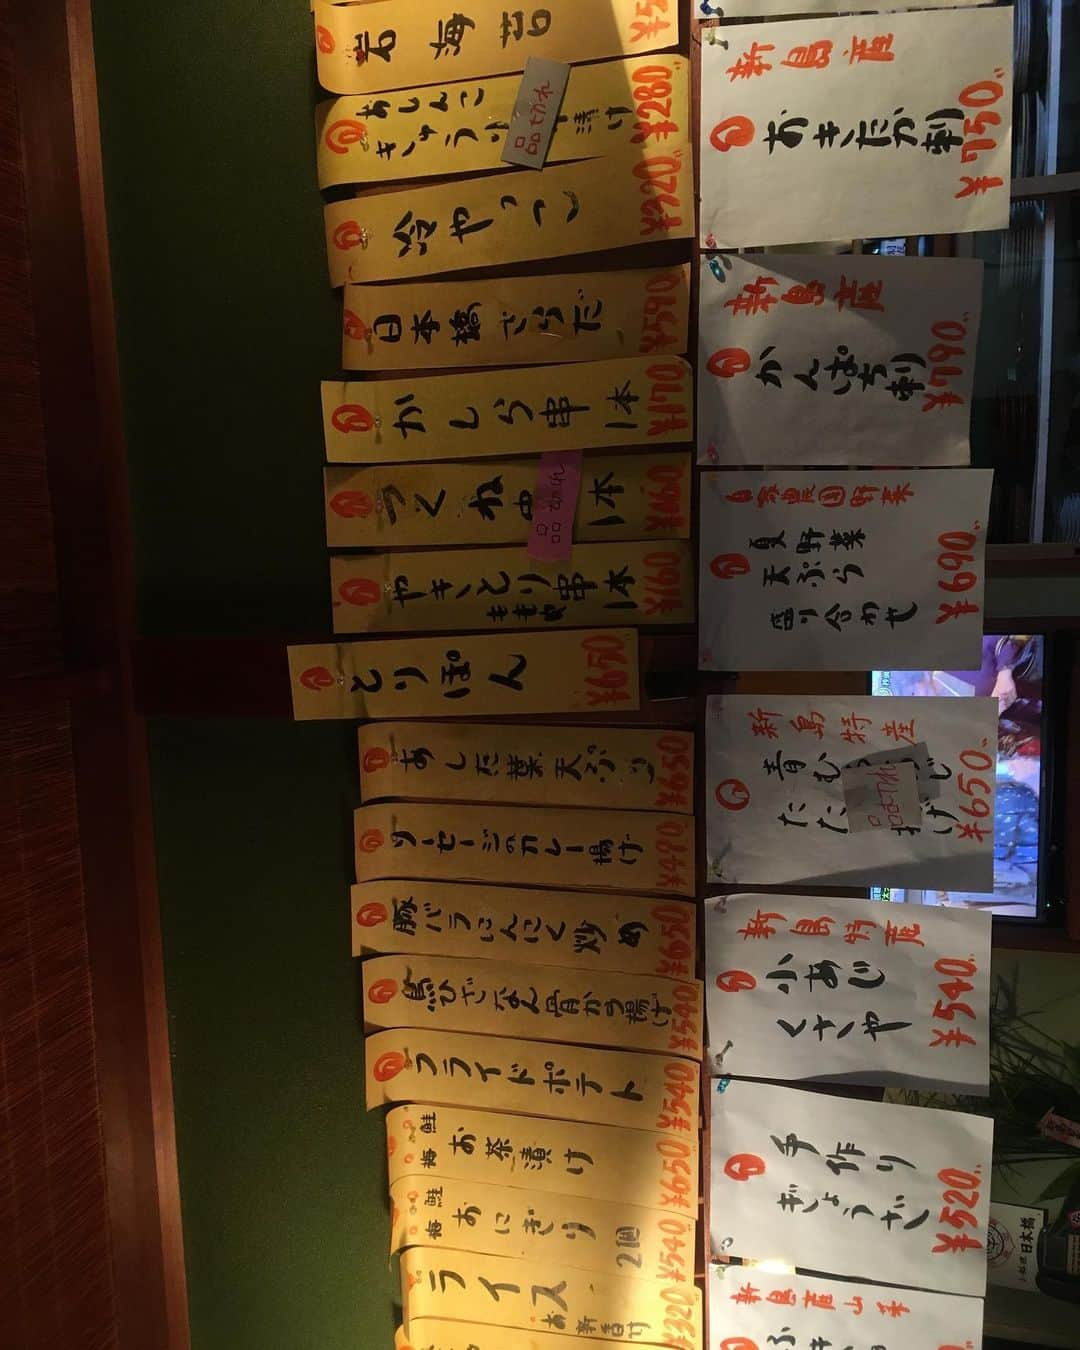 岩海苔
あしんこ
きゅうり
漬け
¥280
品切れ
冷やっこ
¥320
日本橋さらだ
¥590
かしら串
1本
¥170
つくね
1本
¥160
品切れ
やきとり串
1本
¥160
とりぽん
¥650
あした葉天ぷら
¥650
ソーセージのカレー揚げ
¥490
豚バラにんにく炒め
¥650
鳥ひざなん骨から揚げ
¥540
フライドポテト
¥540
鮭
梅
お茶漬け
¥650
鮭
梅
おにぎり
2個
¥540
ライス
お新香付
¥320
新島産
おきたか刺
¥750
新島産
かんぱち刺
¥790
自家農園野菜
夏野菜
天ぷら
盛り合わせ
¥690
新島特産
青む
たた
揚げ
¥650
品切れ
新島特産
小あじ
くさや
¥540
手作り
ぎょうざ
¥520
新島産山菜
ふき
日本橋